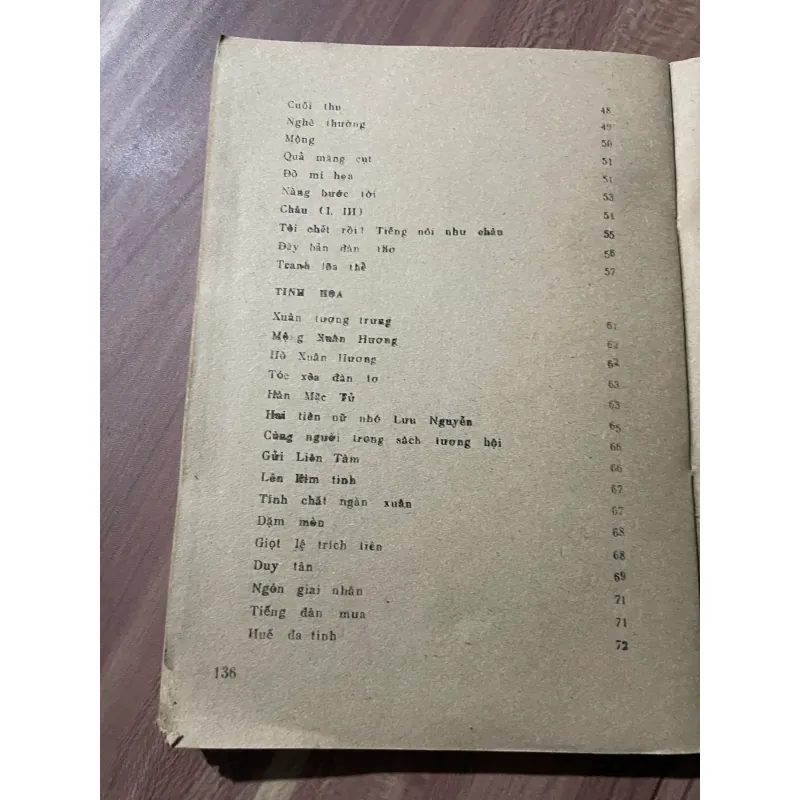 Cuối thu 48
Nghê thường 49
Mộng 50
Quả măng cụt 51
Đồ mi hoa 51
Nàng bước tới 53
Châu (I, III) 54
Tôi chết rồi! Tiếng nói như châu 55
Đây bản đàn thơ 56
Tranh lõa thề 57
TINH HOA
Xuân tượng trưng 61
Mộng Xuân Hương 62
Hồ Xuân Hương 62
Tóc xõa đàn tơ 63
Hàn Mặc Tử 63
Hai tiên nữ nhớ Lưu Nguyễn 65
Cùng người trong sách tương hội 66
Gửi Liên Tâm 66
Lên Kim tinh 67
Tinh chất ngàn xuân 67
Dặm mòn 68
Giọt lệ trích tiên 68
Duy tân 69
Ngón giai nhân 71
Tiếng đàn mưa 71
Huế đa tình 72
136